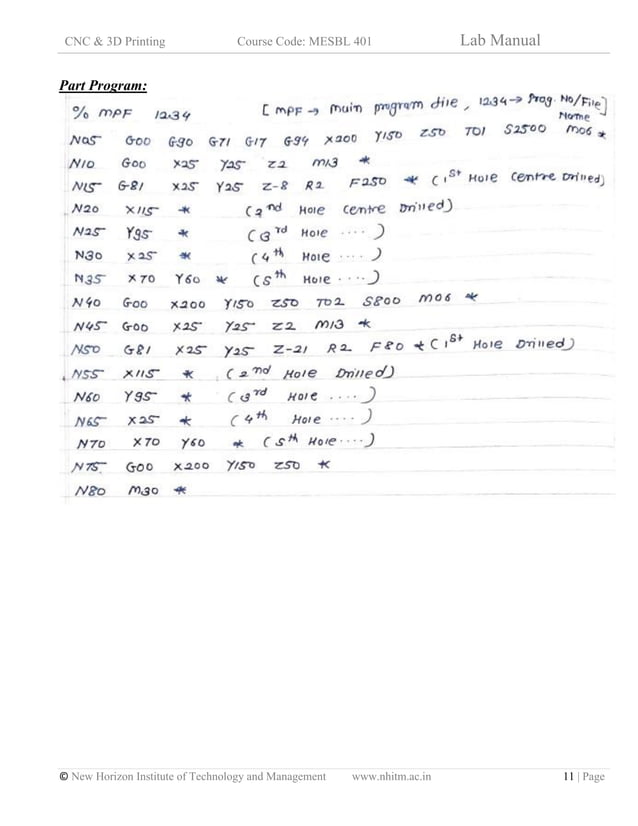 CNC & 3D Printing Course Code: MESBL 401 Lab Manual
Part Program:
% MPF 1234 [ MPF → main program file, 1234 → Prog. No/File Name ]
N05 G00 G90 G71 G17 G94 X200 Y150 Z50 T01 S2500 M06 *
N10 G00 X25 Y25 Z2 M13 *
N15 G81 X25 Y25 Z-8 R2 F250 * (1st Hole Centre Drilled)
N20 X115 * (2nd Hole Centre Drilled)
N25 Y95 * (3rd Hole ....)
N30 X25 * (4th Hole ....)
N35 X70 Y60 * (5th Hole ....)
N40 G00 X200 Y150 Z50 T02 S800 M06 *
N45 G00 X25 Y25 Z2 M13 *
N50 G81 X25 Y25 Z-21 R2 F80 * (1st Hole Drilled)
N55 X115 * (2nd Hole Drilled)
N60 Y95 * (3rd Hole ....)
N65 X25 * (4th Hole ....)
N70 X70 Y60 * (5th Hole ....)
N75 G00 X200 Y150 Z50 *
N80 M30 *
© New Horizon Institute of Technology and Management www.nhitm.ac.in 11 | Page